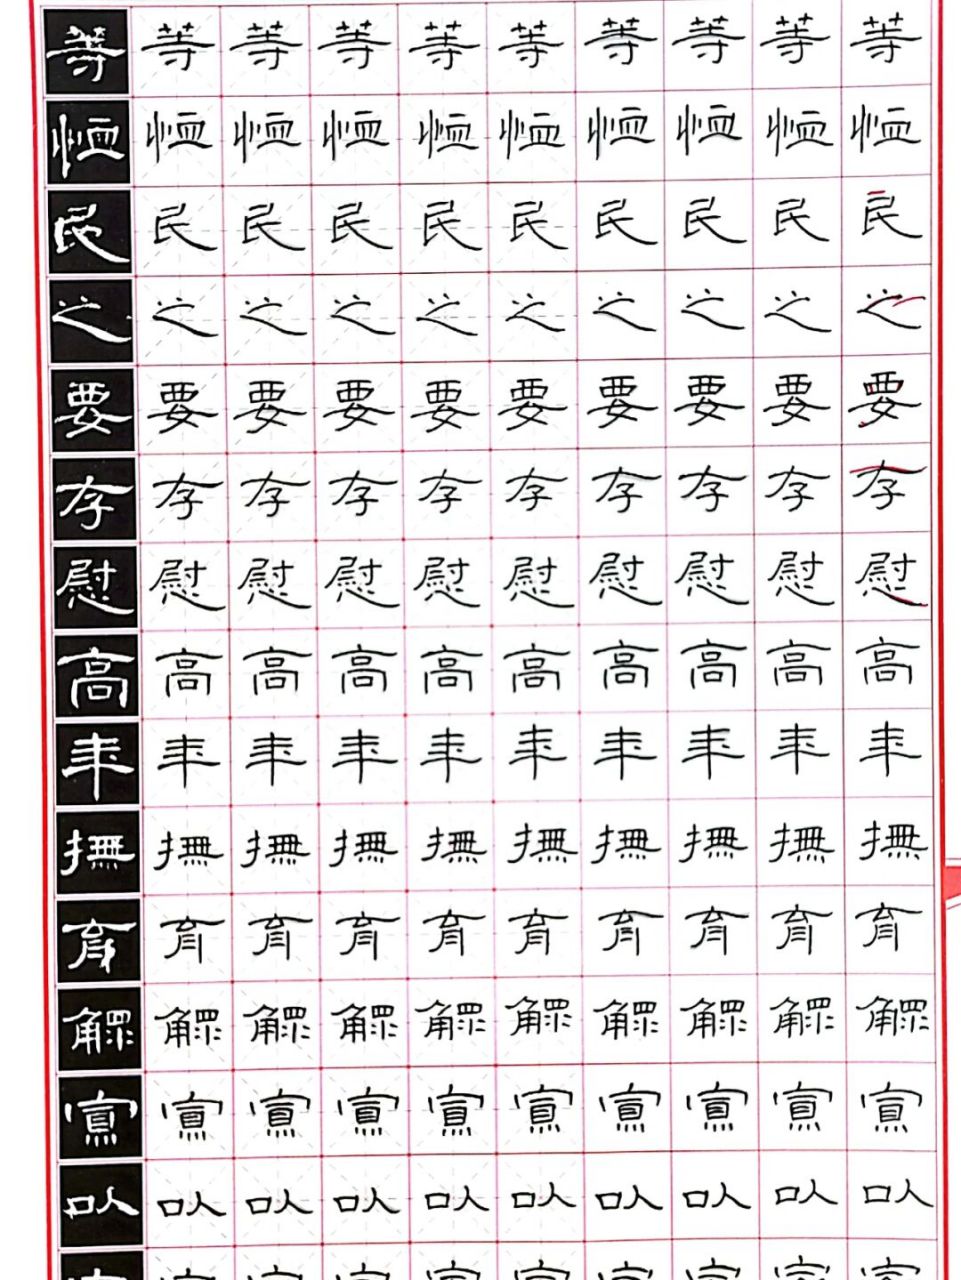 等等等等等等等等等等
恤恤恤恤恤恤恤恤恤恤
民民民民民民民民民民
之之之之之之之之之之
要要要要要要要要要要
存存存存存存存存存存
慰慰慰慰慰慰慰慰慰慰
高高高高高高高高高高
年年年年年年年年年年
撫撫撫撫撫撫撫撫撫撫
育育育育育育育育育育
鰥鰥鰥鰥鰥鰥鰥鰥鰥鰥
寡寡寡寡寡寡寡寡寡寡
以以以以以以以以以以